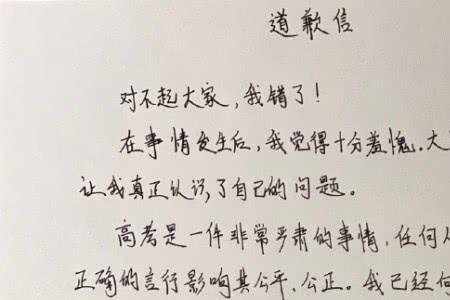 道歉信
对不起大家，我错了！
在事情发生后，我觉得十分羞愧。大
让我真正认识了自己的问题。
高考是一件非常严肃的事情，任何
正确的言行影响其公平、公正。我已经何